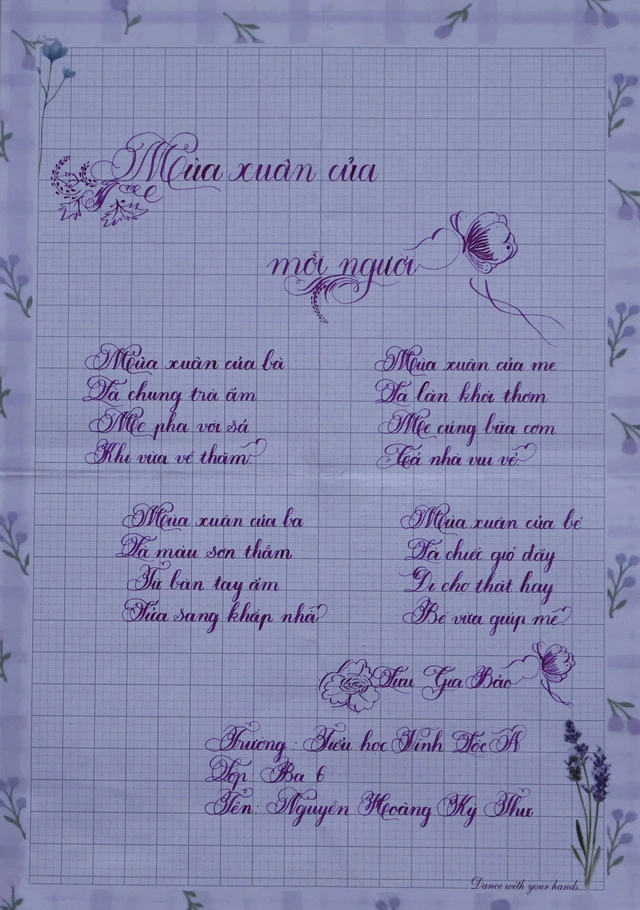 Mùa xuân của
mỗi người
Mùa xuân của bà
Là chung trà ấm
Mẹ pha với sả
Khi vừa về thăm
Mùa xuân của mẹ
Là làn khói thơm
Mẹ cúng bữa cơm
Cả nhà vui vẻ
Mùa xuân của ba
Là màu sơn thắm
Từ bàn tay ấm
Sửa sang khắp nhà
Mùa xuân của bé
Là chiếc giỏ đầy
Đi chợ thật hay
Bé vừa giúp mẹ
Lưu Gia Bảo
Trường: Tiểu học Vĩnh Lộc A
Lớp: Ba 6
Tên: Nguyễn Hoàng Kỳ Thư
Dance with your hands